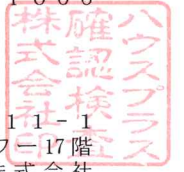 ハウスプラス
確認検査
株式会社印
11-1
17階
株式会社